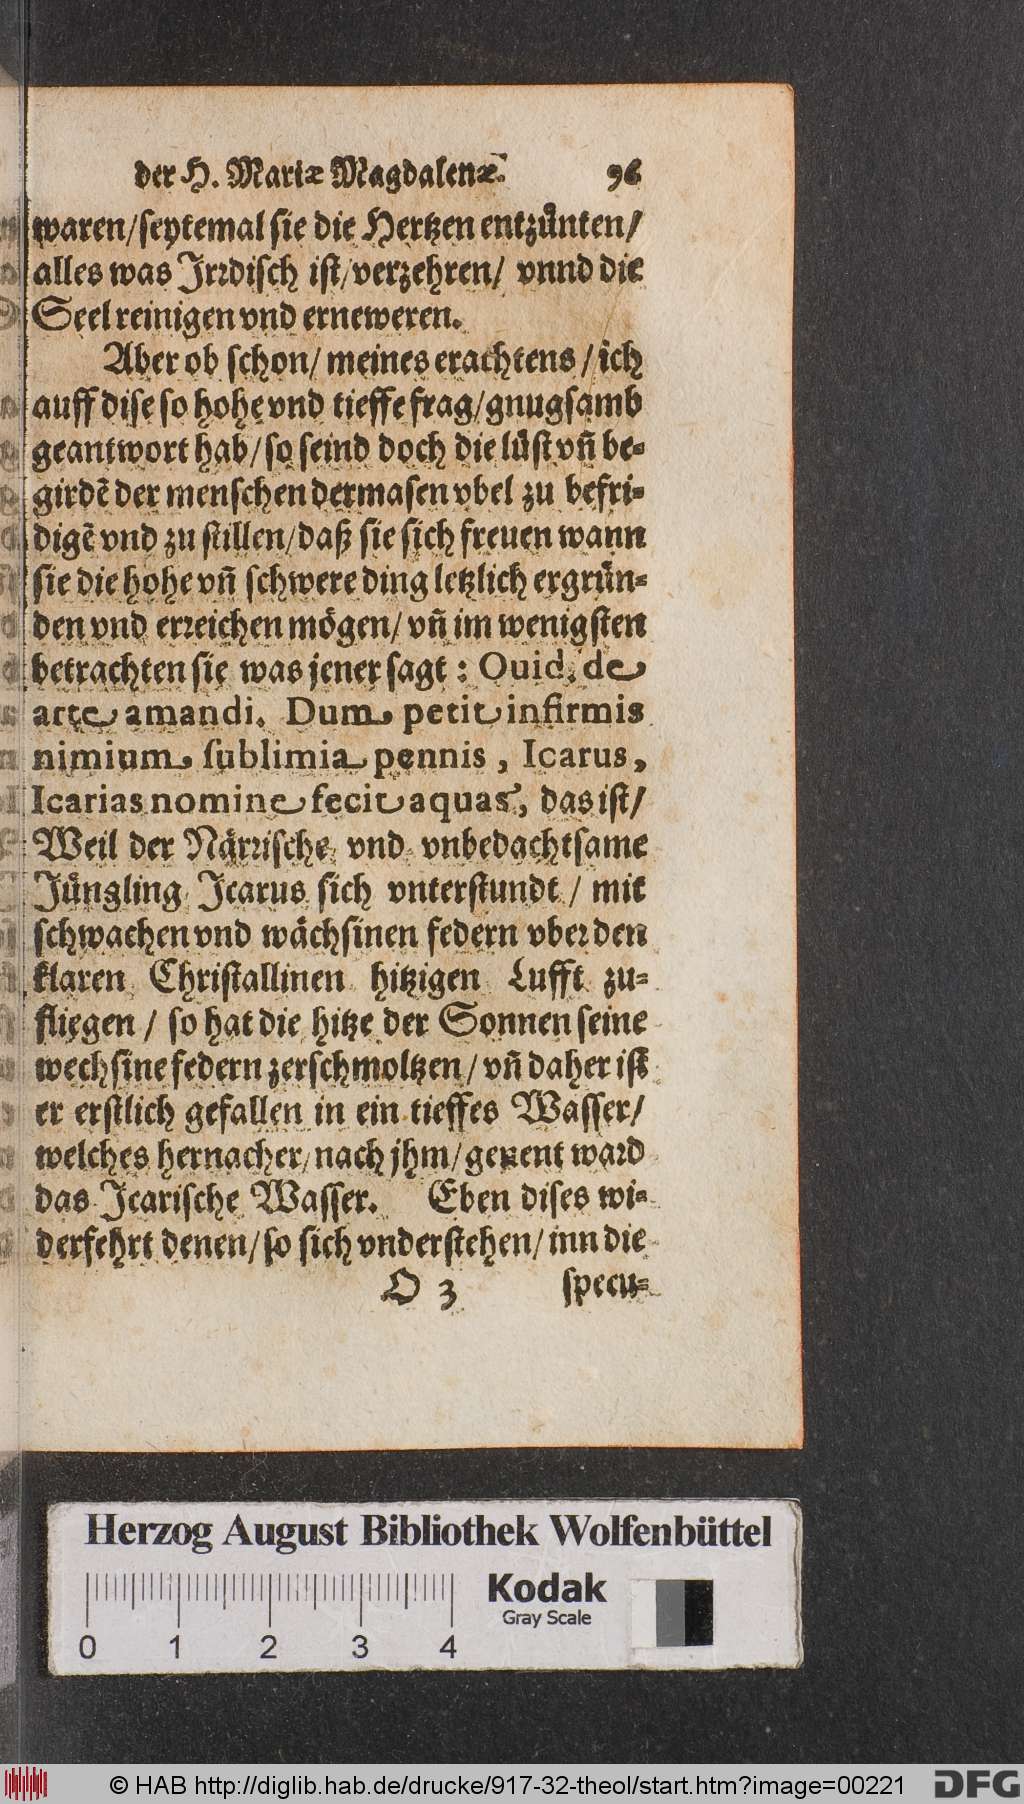 der H. Mariæ Magdalenæ. 96
waren/seytemal sie die Hertzen entzůnten/
alles was Jrrdisch ist/verzehren/ vnnd die
Seel reinigen vnd erneweren.
Aber ob schon/ meines erachtens / ich
auff dise so hohe vnd tieffe frag/gnugsamb
geantwort hab/so seind doch die lůst vñ be-
girdẽ der menschen dermasen vbel zu befri-
digẽ vnd zu stillen/daß sie sich freuen wann
sie die hohe vñ schwere ding letzlich ergrůn-
den vnd erreichen mögen/ vñ im wenigsten
betrachten sie was jener sagt : Ouid. de
arte amandi. Dum petit infirmis
nimium ſublimia pennis , Icarus,
Icarias nomine fecit aquas, das ist/
Weil der Närrische vnd vnbedachtsame
Jůngling Jcarus sich vnterstundt / mit
schwachen vnd wächsinen federn vber den
klaren Christallinen hitzigen Lufft zu-
fliegen / so hat die hitze der Sonnen seine
wechsine federn zerschmoltzen/ vñ daher ist
er erstlich gefallen in ein tieffes Wasser/
welches hernacher/nach jhm/genent ward
das Jcarische Wasser. Eben dises wi-
derfehrt denen/so sich vnderstehen/inn die
O 3 specu-
Herzog August Bibliothek Wolfenbüttel
Kodak
Gray Scale
0 1 2 3 4
© HAB http://diglib.hab.de/drucke/917-32-theol/start.htm?image=00221
DFG